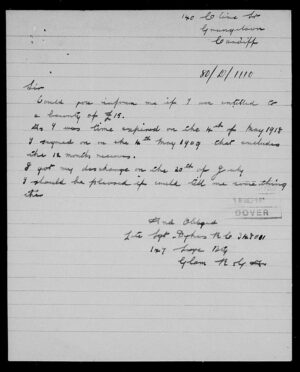 140 Clive St
Grangetown
Cardiff
Sir
Could you inform me if I am entitled to
a bounty of £15.
As I was time expired on the 4th of May 1918
I signed on on the 4th May 1909 that includes
the 12 months
I got my discharge on the 20th of July
I should be pleased if could tell me something
this
DOVER
And Oblige
Late Sgt Dykes
Siege Bty
Glam R G A